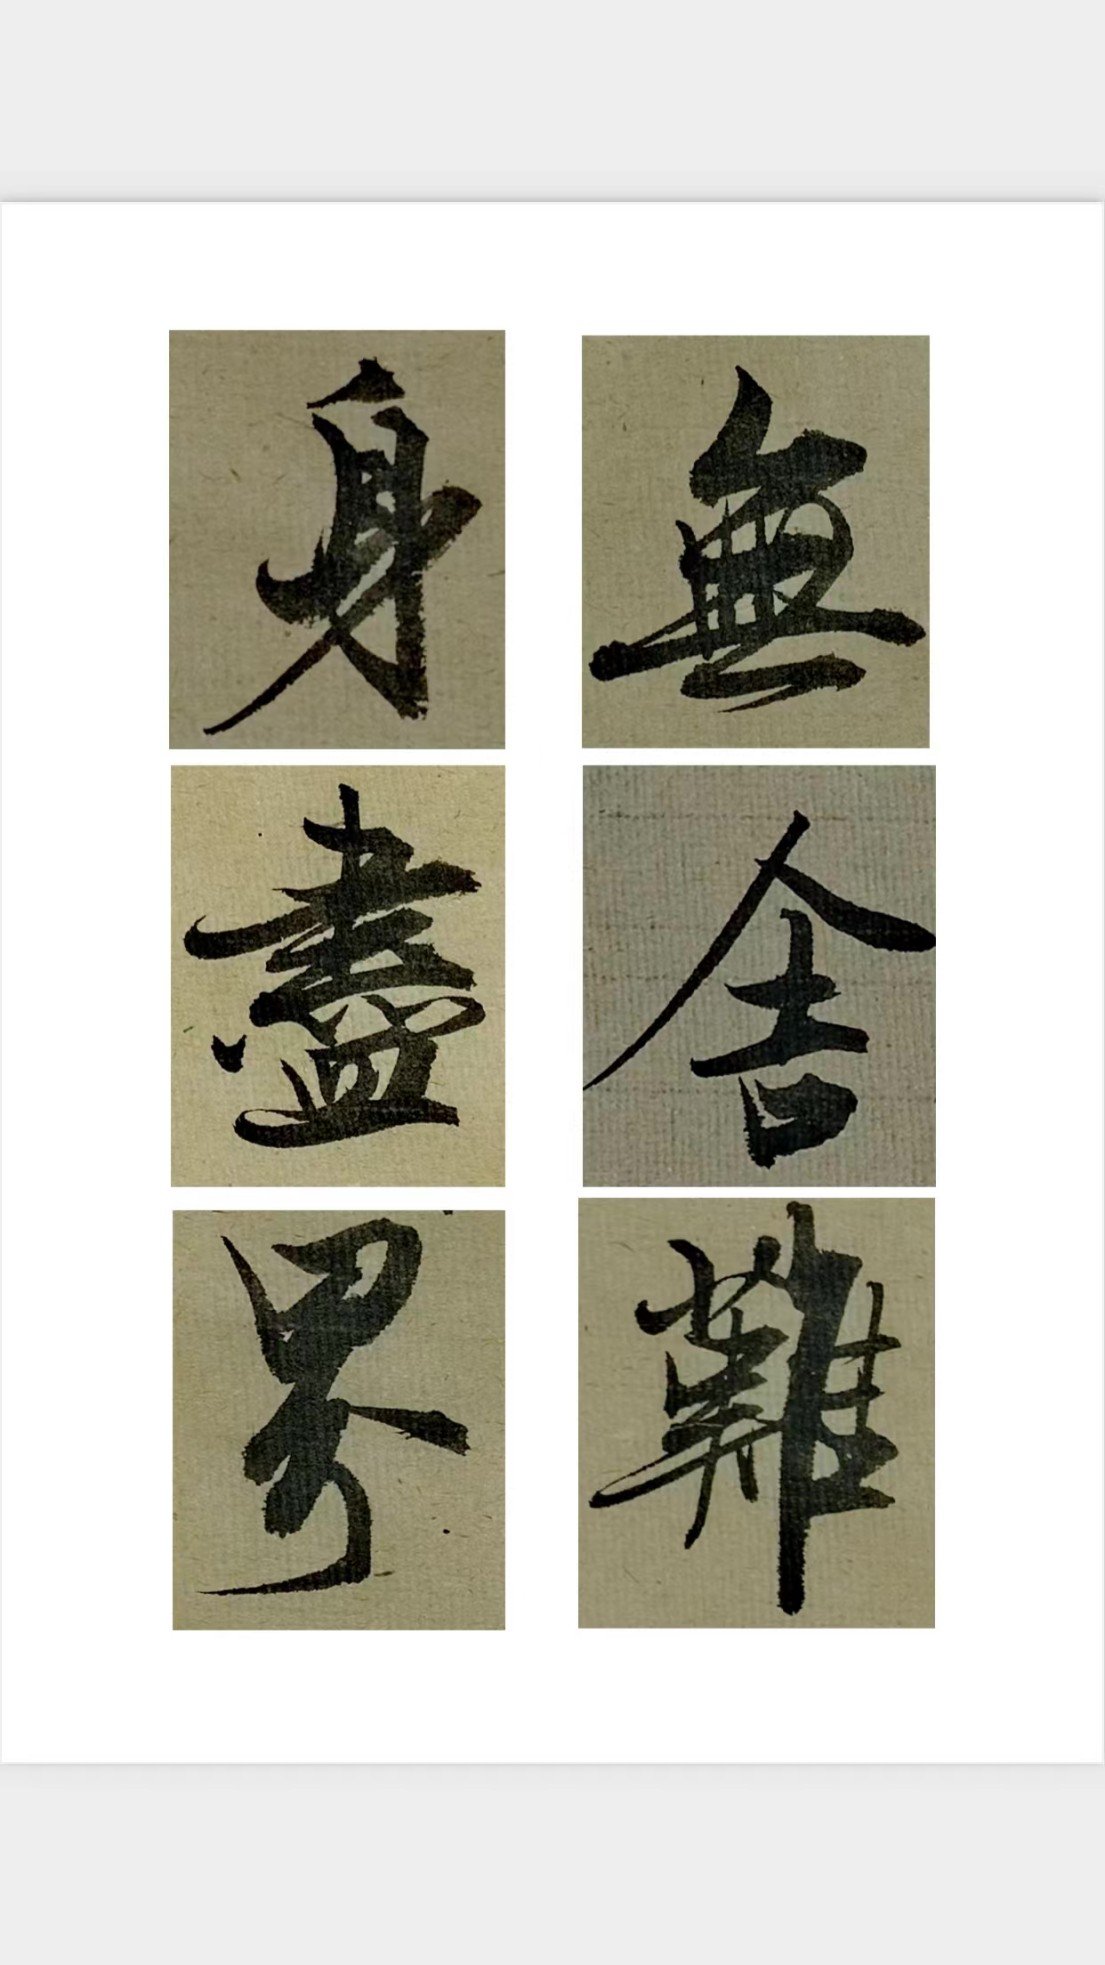 無舍難
身盡界